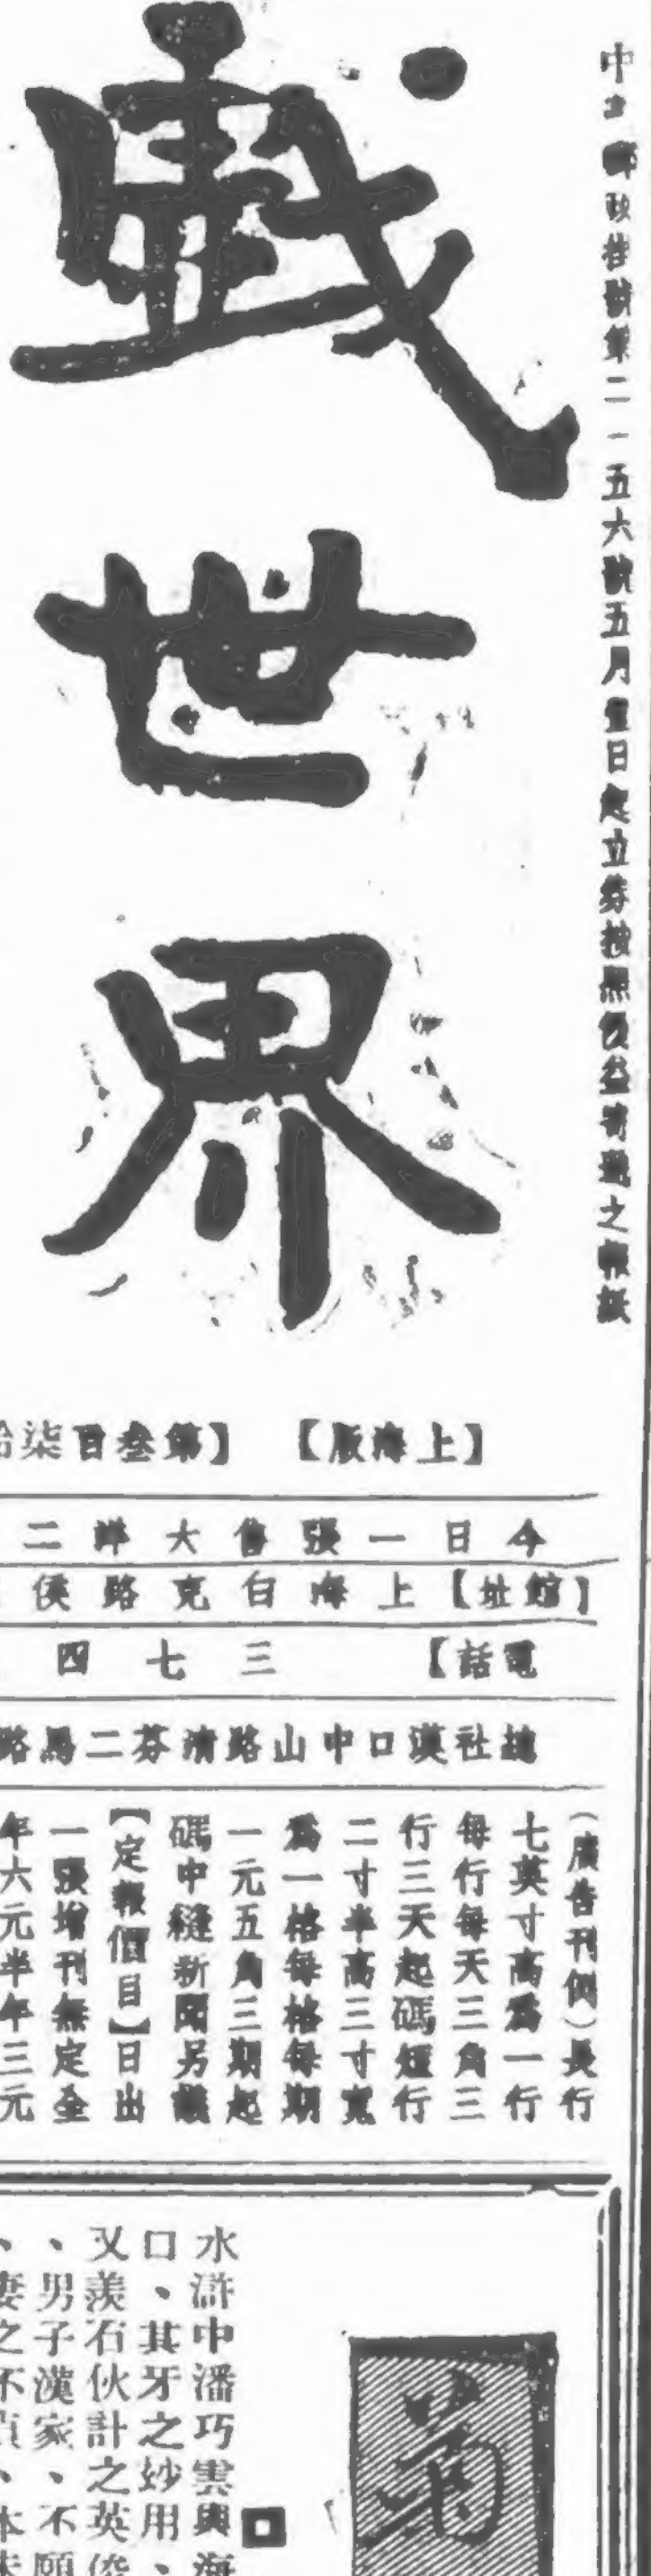 中郵政掛號第二一五六號五月壹日起立券按照優益寄遞之報紙
戲世界
【上海版】
【第叁百柒拾
今日一張售大洋二
【館址】上海白克路侯
【電話】三七四
總社漢口中山路清芬二馬路
(廣告刊例)長行
七英寸高為一行
每行每天三角三
行三天起碼短行
二寸半高三寸寬
為一格每格每期
一元五角三期起
碼中縫新聞另議
【定報價目】日出
一張增刊無定全
年六元半年三元
菊
水滸中潘巧雲與海
口、其牙之妙用、
又羨石伙計之英俊
、男子漢家、不願
、妻之不貞、本未